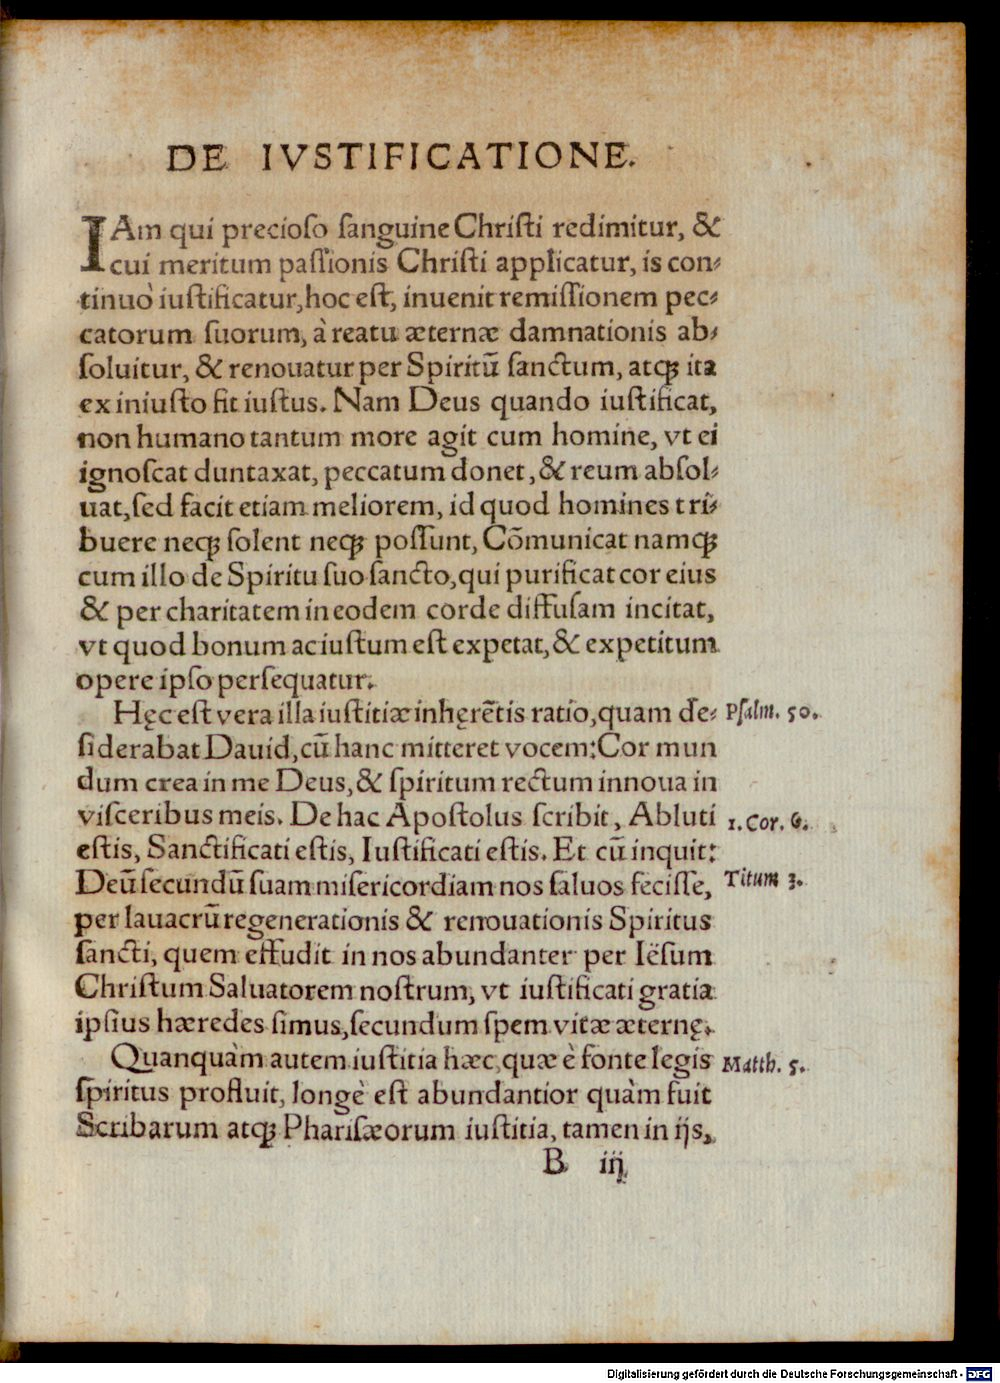 DE IVSTIFICATIONE.
IAm qui precioso sanguine Christi redimitur, &
cui meritum passionis Christi applicatur, is con-
tinuò iustificatur, hoc est, inuenit remissionem pec-
catorum suorum, à reatu æternæ damnationis ab-
soluitur, & renouatur per Spiritũ sanctum, atqꝫ ita
ex iniusto fit iustus. Nam Deus quando iustificat,
non humano tantum more agit cum homine, vt ei
ignoscat duntaxat, peccatum donet, & reum absol-
uat, sed facit etiam meliorem, id quod homines tri-
buere neqꝫ solent neqꝫ possunt, Cõmunicat namqꝫ
cum illo de Spiritu suo sancto, qui purificat cor eius
& per charitatem in eodem corde diffusam incitat,
vt quod bonum ac iustum est expetat, & expetitum
opere ipso persequatur.
Hęc est vera illa iustitiæ inherẽtis ratio, quam de- Psalm. 50.
siderabat Dauid, cũ hanc mitteret vocem: Cor mun
dum crea in me Deus, & spiritum rectum innoua in
visceribus meis. De hac Apostolus scribit, Abluti 1. Cor. 6.
estis, Sanctificati estis, Iustificati estis. Et cũ inquit:
Deũ secundũ suam misericordiam nos saluos fecisse, Titum 3.
per lauacrũ regenerationis & renouationis Spiritus
sancti, quem effudit in nos abundanter per Iësum
Christum Saluatorem nostrum, vt iustificati gratia
ipsius hæredes simus, secundum spem vitæ æternę.
Quanquàm autem iustitia hæc, quæ è fonte legis Matth. 5.
spiritus profluit, longè est abundantior quàm fuit
Scribarum atqꝫ Pharisæorum iustitia, tamen in ijs,
B iij
Digitalisierung gefördert durch die Deutsche Forschungsgemeinschaft - DFG